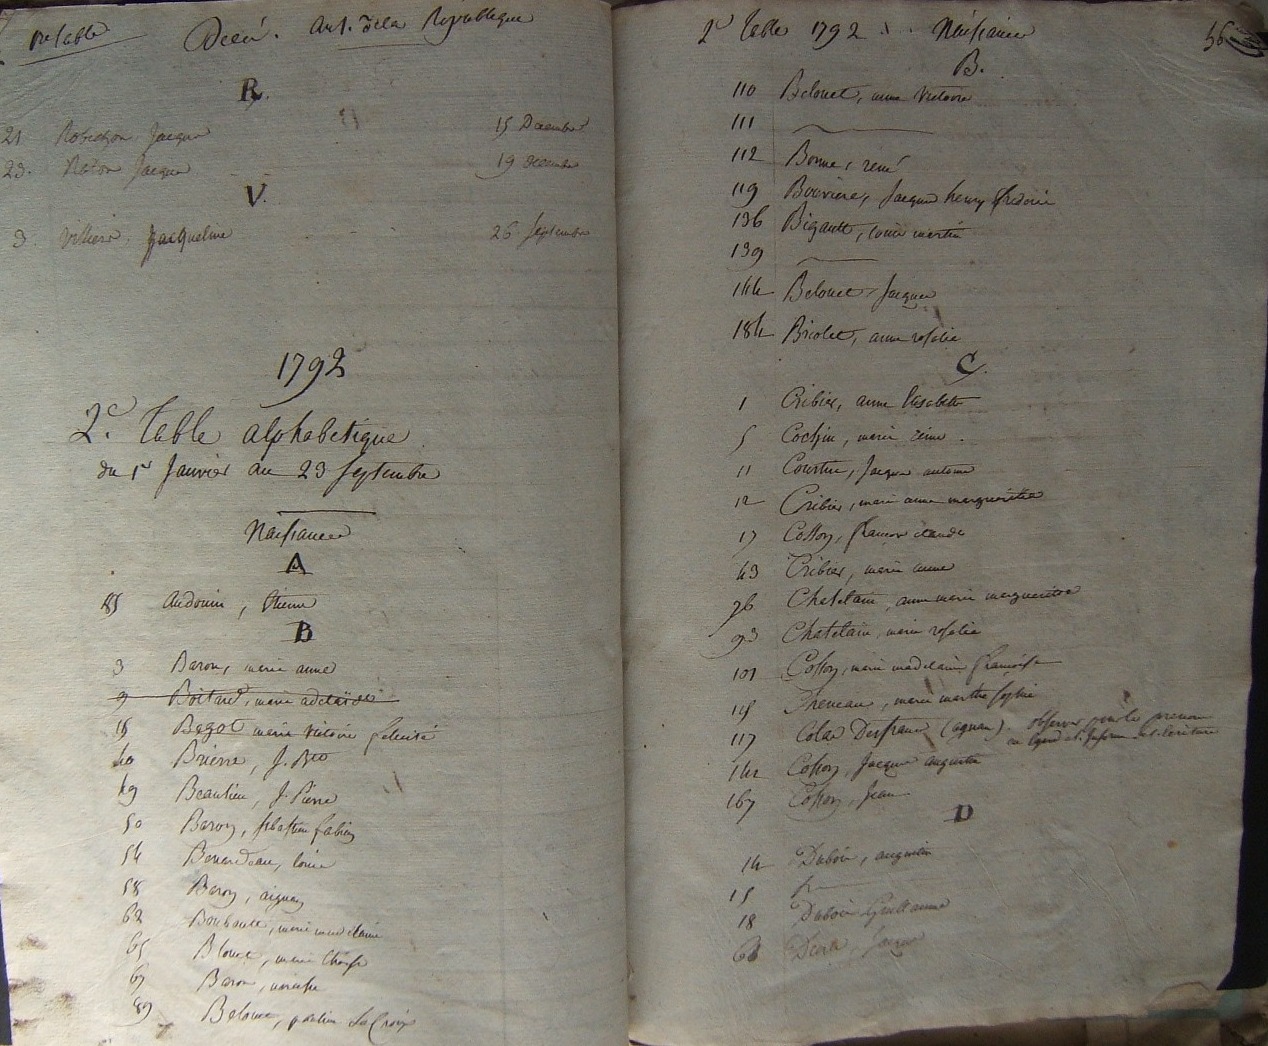 1re Table Décès. An 1. de la République
R.
21 Robichon Jacques 15 Decembre
23. Jacques 19 Decembre
V.
3 Villiers Jacqueline 26 Septembre
1792
2e. Table alphabetique
du 1er Janvier au 23 Septembre
Naissances
A
85 Audouin, Etienne
B
3 Baron, marie anne
9 Boitard, marie adelaïde
15 Bezot marie victoire felicité
40 Brierre, J. Bte
49 Beaulieu, J. Pierre
50 Baron, sebastien fabien
54 Benardeau, louis
58 Baron, aignan
62 marie madelaine
65 Blouet, marie
69 Baron,
89 Belouet, La Croix
2e Table 1792 Naissances 56
B.
110 Belouet, anne Victoire
111
112 Bonne, rené
119 Bouviere, Jacques henry
136 Bigault, louis martin
139
144 Belouet Jacques
184 Briolet, anne rosalie
C.
1 Cribier, anne Elisabeth
5 Cochin, marie
11 Courtin, Jacques antoine
12 Cribier, marie anne margueritte
17 Cosson, françois claude
43 Cribier, marie anne
76 Chatelain, anne marie margueritte
93 Chatelain, marie rosalie
101 Cosson, marie madelaine françoise
115 marie marthe sophie
117 Colas Desfrancs (aignan). observer pour le prenom
142 Cosson, Jacques augustin
167 Cosson, Jean
D
14 Dubois, augustin
15
18 Dubois Guillaume
68